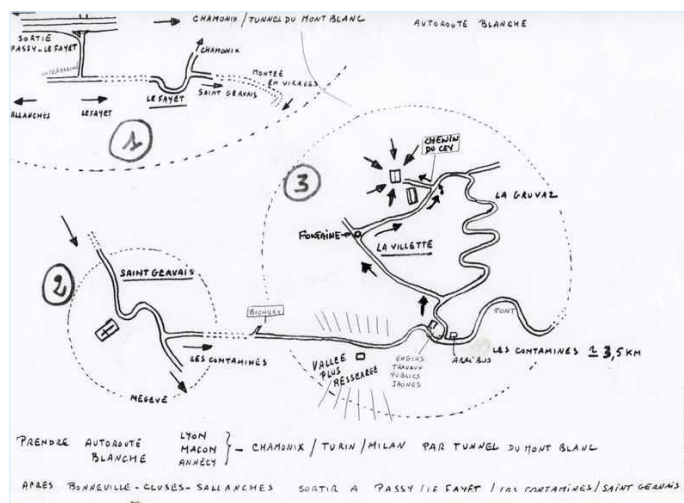 CHAMONIX / TUNNEL DU MONT BLANC
AUTOROUTE BLANCHE
SORTIE
PASSY-LE FAYET
INTERMARCHE
CHAMONIX
MONTÉE
EN VIRAGES
SALLANCHES
LEFAYET
LE FAYET
SAINT GERVAIS
1
CHEMIN
DU CEY
3
LA GRUVAZ
FONTAINE
LA VILLETTE
SAINT GERVAIS
2
BIONNAY
PONT
LES CONTAMINES
MEGÈVE
VALLÉE
PLUS
RESSERRÉE
ENGINS
TRAVAUX
PUBLICS
JAUNES
ABRI BUS
LES CONTAMINES ≃ 3,5 KM
PRENDRE AUTOROUTE BLANCHE
LYON
MACON
ANNECY
} - CHAMONIX / TURIN / MILAN PAR TUNNEL DU MONT BLANC
APRÈS BONNEVILLE - CLUSES - SALLANCHES SORTIR A PASSY / LE FAYET / LES CONTAMINES / SAINT GERVAIS